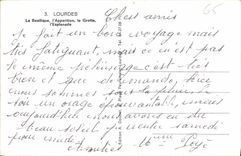 3. LOURDES
La Basilique, l'Apparition, la Grotte,
l'Esplanade
65
Chers amis
Je fait un bon voyage mais
très fatiguant, mais ce n'est pas
le même pélerinage c'est très
bien et que de monde, hier
nous sommes sous la pluie
tout un orage épouvantable, mais
aujourd'hui nous avons eu du
beau soleil rentre samedi
pour midi
Amitiés